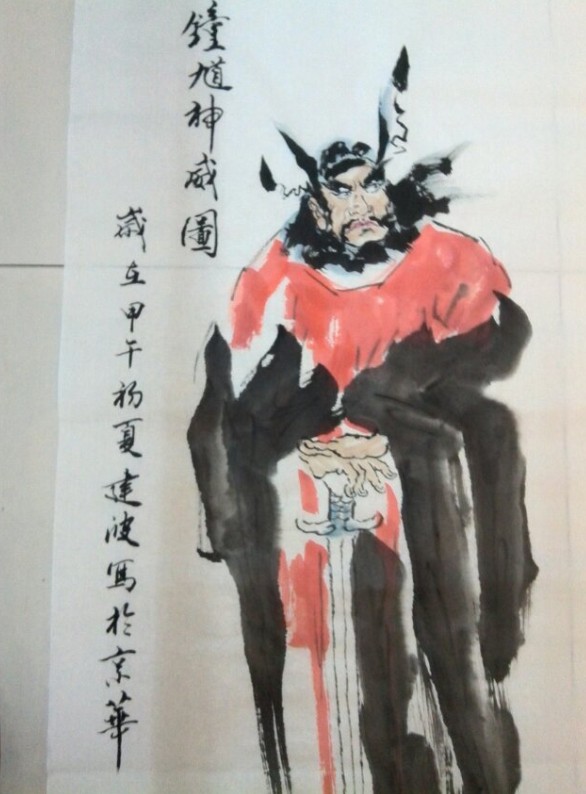 鐘馗神威圖
歲在甲午初夏建波寫於京華